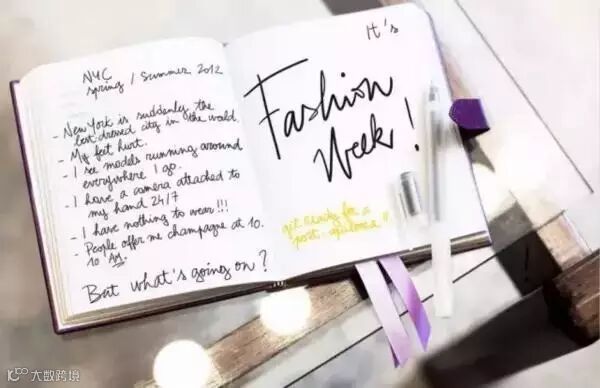 NYC
spring / summer 2012
- New York is suddenly the
best dressed city in the world.
- My feet hurt.
- I see models running around
everywhere I go.
- I have a camera attached to
my hand 24/7
- I have nothing to wear!!!
- People offer me champagne at 10.
10 AM.
But what's going on?
It's
Fashion
Week!
get ready for a
post-
大数跨境